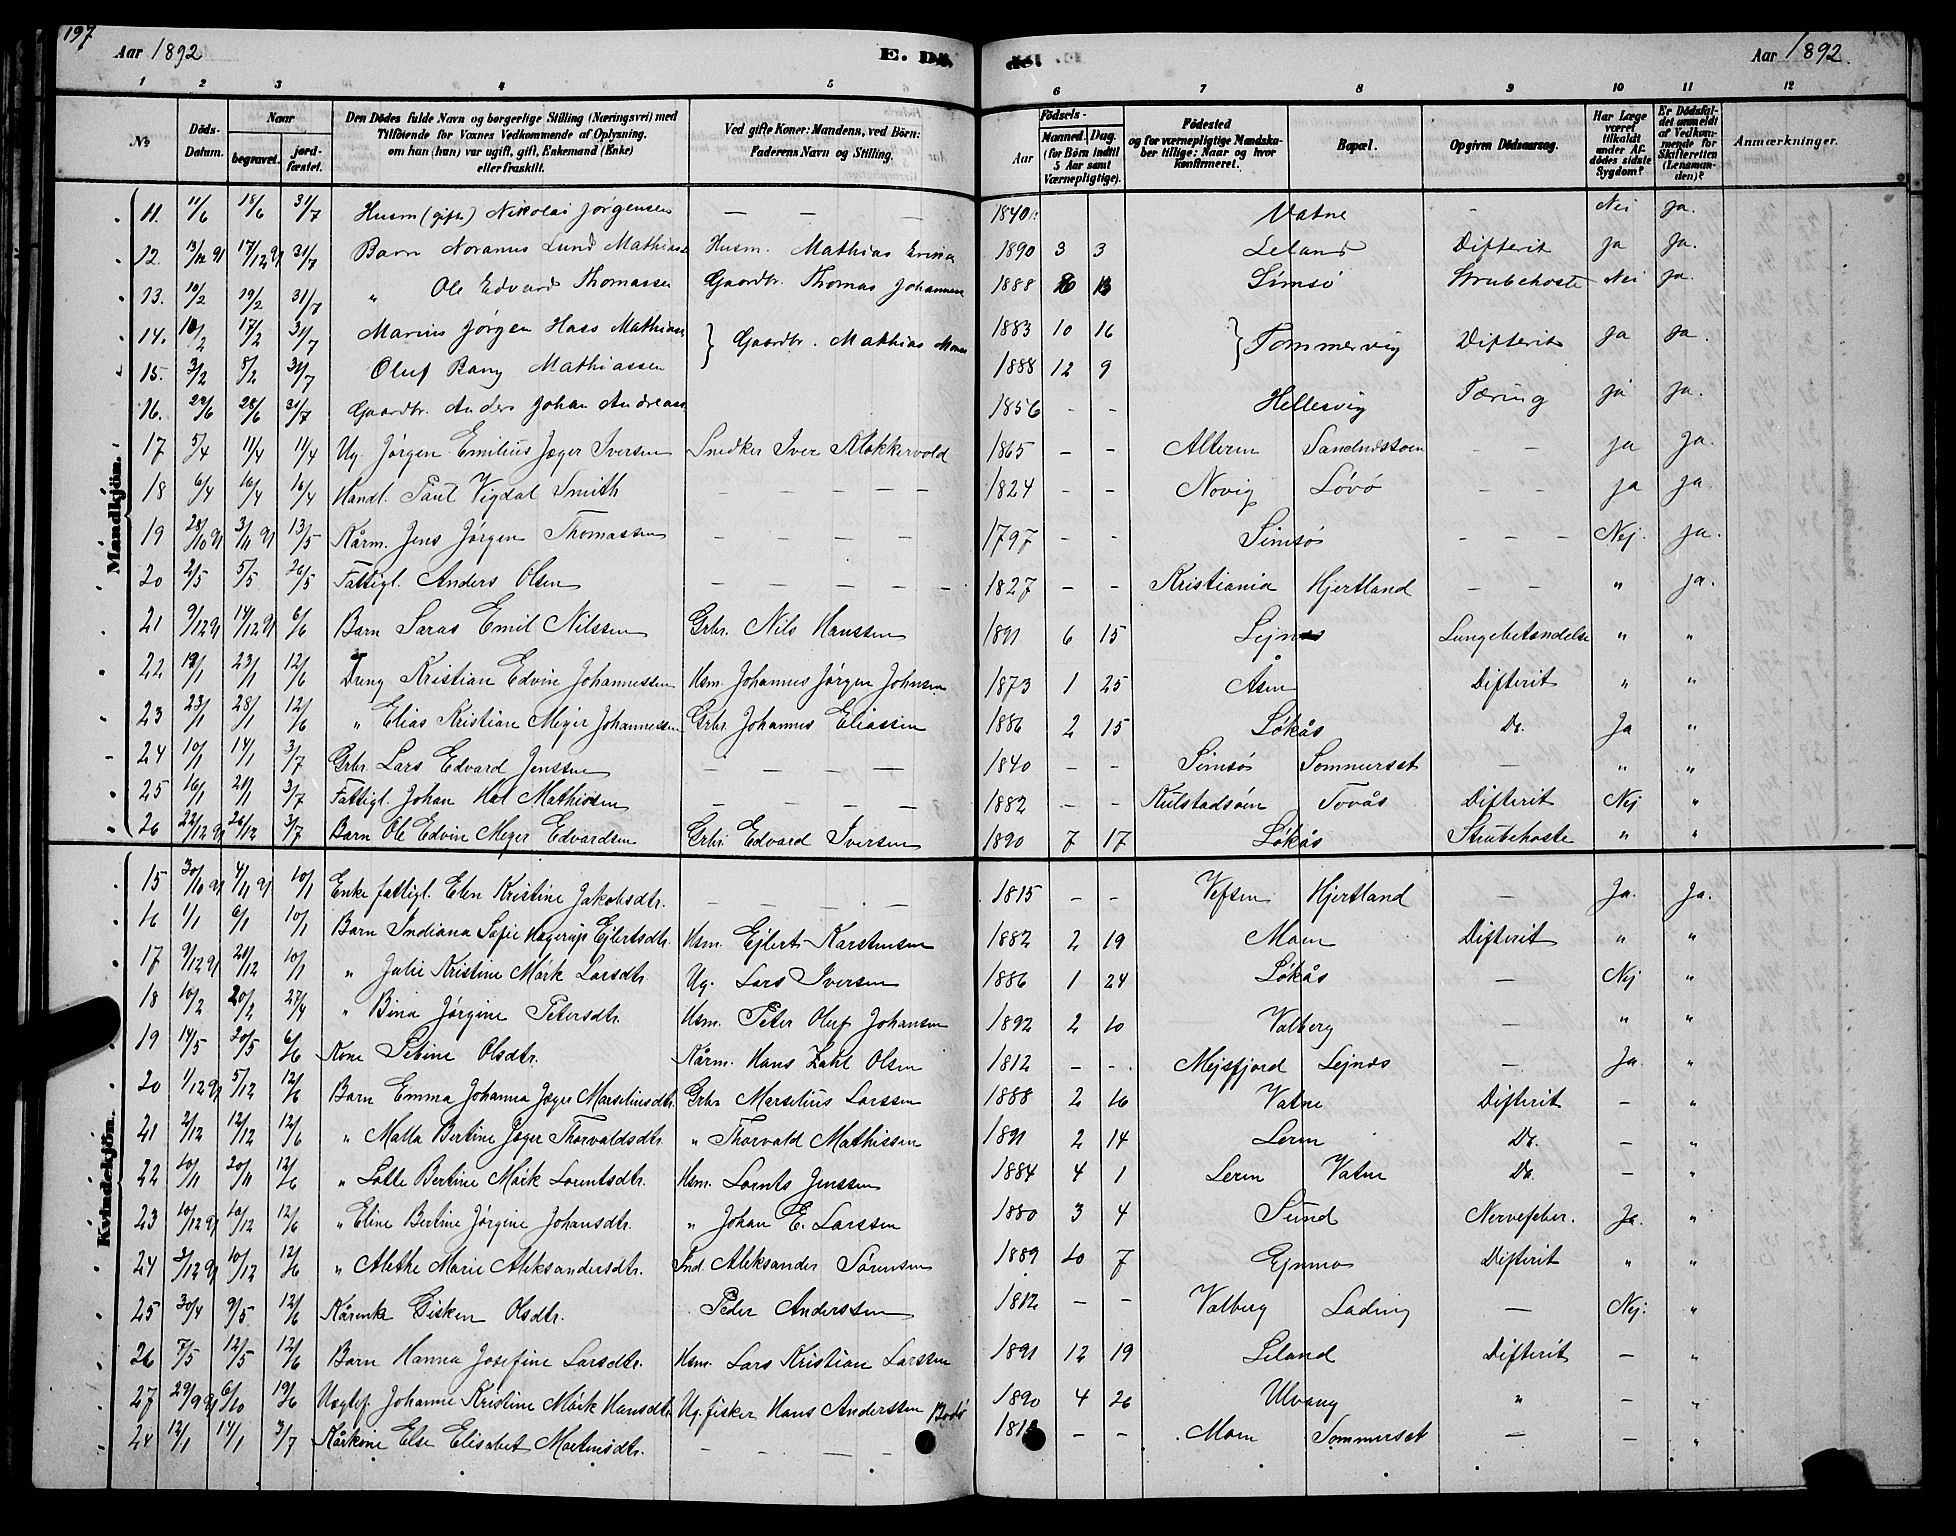 197
Aar 1892
E. Dö
de.
Aar 1892.
1 2 3 4 5 6 7 8 9 10 11 12
№
Döds-Datum.
Naar
begravet.
jordfæstet.
Den Dödes fulde Navn og borgerlige Stilling (Næringsvei) med Tilföiende for Voxnes Vedkommende af Oplysning, om han (hun) var ugift, gift, Enkemand (Enke) eller fraskilt.
Ved gifte Koner: Mandens, ved Börn: Faderens Navn og Stilling.
Födsels-
Aar
Maaned. Dag.
(for Börn indtil 5 Aar samt Værnepligtige).
Födested og for værnepligtige Mandskaber tillige: Naar og hvor konfirmeret.
Bopæl.
Opgiven Dödsaarsag.
Har Læge været tilkaldt under Afdödes sidste Sygdom?
Er Dödsfaldet anmeldt af Vedkommende for Skifteretten (Lensmanden)?
Anmærkninger.
Mandkjön.
11. 11/6 18/6 31/7 Husm (gift) Nikolai Jørgensen — — — 1840 Vatne - Nei ja.
12. 13/12 91 17/12 91 31/7 Barn Noranus Lund Mathiass Husm. Mathias 1890 3 3 Leland Difterit ja Ja.
13. 10/2 19/2 31/7 " Ole Edvard Thomassen Gaardbr. Thomas Johannesen 1888 Simsø Strubehoste Nei ja.
14. 10/2 17/2 31/7 Marius Jørgen Hass Mathiass } Gaardbr. Mathias 1883 10 16 } Tommervig Difterit ja ja.
15. 3/2 5/2 31/7 Oluf Bang Mathiassen 1888 12 9
16. 22/6 28/6 31/7 Gaardbr. Anders Johan Andreass 1856 - - Hellesvig Tæring ja ja.
17 5/4 11/4 11/4 Ug. Jørgen Emilius Jæger Iversen Snedker Iver Klokkervold 1865 - - Alteren Sandnæstoen - - ja Ja.
18 6/4 16/4 16/4 Handl. Paul Vigdal Smith — — — — 1824 - - Novig Løvø - - ja ja.
19 28/10 91 3/11 91 13/5 Kårm. Jens Jørgen Thomassen — — — — 1797 - - Simsø - - - Nej. ja.
20 2/5 5/5 26/5 Fattigl. Anders Olsen — — — — 1827 - - Kristiania Hjertland - - " ja.
21 9/12 91 14/12 91 6/6 Barn Saras Emil Nilssen Grbr. Nils Hanssen 1891 6 15 Lejnes Lungebetændelse " "
22 19/1 23/1 12/6 Dreng Kristian Edvin Johannessen Hsm. Johannes Jørgen Johnsen 1873 1 25 Åsen Difterit " "
23 23/1 28/1 12/6 " Elias Kristian Mejer Johannessen Grbr. Johannes Eliassen 1886 2 15 Løkås Do. Ja "
24 10/1 14/1 3/7 Grbr. Lars Edvard Jenssen — — — — 1840 - - Simsø Sommerset - " "
25 16/1 20/1 3/7 Fattigl. Johan Hal Mathissen — — — — 1882 - - Kulstadsøen Tovås Difterit Nej "
26 22/12 91 26/12 3/7 Barn Ole Edvin Mejer Edvardsen Grbr. Edvard Iversen 1890 7 17 Løkås Strubehoste " "
Kvindekjön.
15 30/10 91 4/11 91 10/1 Enke fattigl. Elen Kristine Jakobsdtr. — — — — 1815 - - Vefsen Hjertland - Ja. Ja.
16 1/1 6/1 10/1 Barn Indiana Sofie Hagerup Ejlertsdtr. Hsm. Ejlert Karstensen 1882 2 19 Moen Difterit " "
17 9/12 91 20/12 10/1 " Julie Kristine Mørk Larsdtr. Ug. Lars Iversen 1886 1 24 Løkås - Nej "
18 10/2 20/2 27/4 " Bina Jørgine Petersdtr. Hsm. Peter Oluf Johansen 1892 2 10 Valberg - " "
19 14/5 20/5 6/6 Kone Sebine Olsdtr. Kårm. Hans Zahl Olsen 1812 - - Mejsfjord Lejnes - Ja. "
20 1/12 91 5/12 12/6 Barn Emma Johanna Jæger Marseliusdtr. Grbr. Marselius Larssen 1888 2 16 Vatne Difterit - "
21 2/12 12/12 12/6 " Malla Bertine Jæger Thorvaldsdtr. " Thorvald Mathissen 1891 2 14 Leren Do. - "
22 10/11 20/11 12/6 " Lotte Bertine Mørk Lorentsdtr. Hsm. Lornts Jenssen 1884 4 1 Leren Vatne Do. - "
23 10/12 91 10/12 12/6 " Eline Bertine Jørgine Johansdtr. " Johan E. Larssen 1880 3 4 Sund Nervefeber. Ja. "
24 3/12 91 10/12 12/6 " Alethe Marie Aleksandersdtr. Ind. Aleksander Sørensen 1889 10 7 Ejnmo Difterit " "
25 30/4 9/5 12/6 Kårenke Gisken Olsdtr. Peder Anderssen 1812 - - Valberg Lading - Nej. "
26 7/5 12/5 12/6 Barn Hanna Josefine Larsdtr. Hsm. Lars Kristian Larssen 1891 12 19 Leland Difterit - "
27 29/9 91 6/10 19/6 Uægtef. Johanne Kristine Mørk Hansdtr. Ug. fisker Hans Anderssen Bodø 1890 4 26 Ulvang " - "
24 12/1 14/1 3/7 Kårkone Else Elisabet Mortensdtr. — — — — - - Moen Sommerset - - "